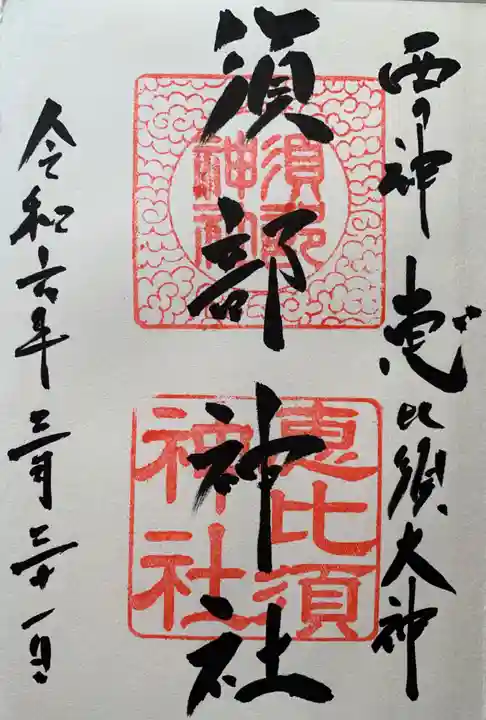 西の神 恵比須大神
須部神社
須部神社
恵比須神社
令和六年三月三十一日